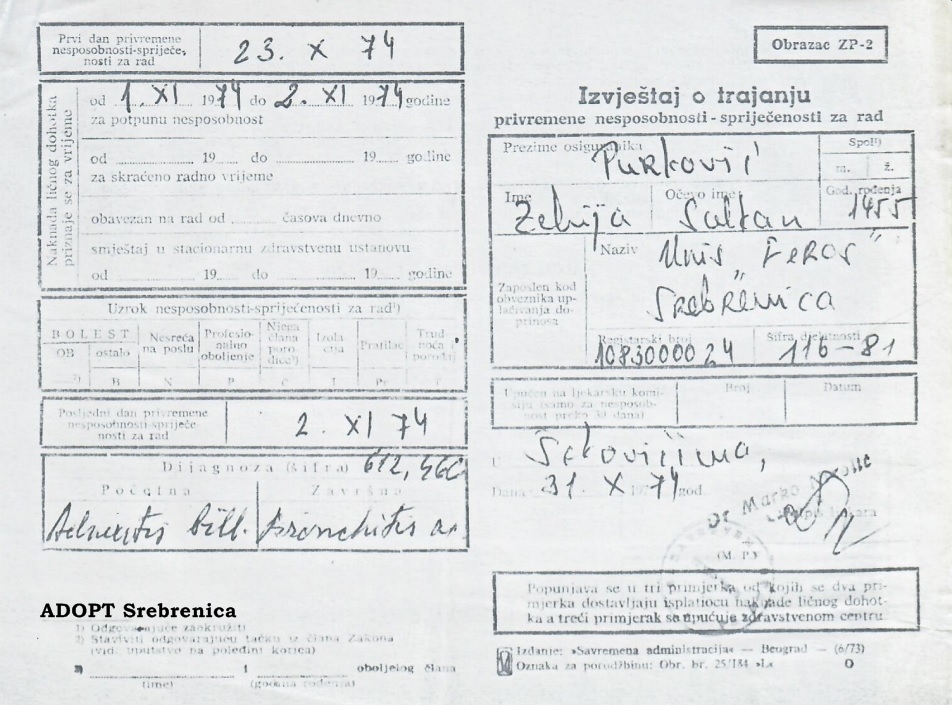 Prvi dan privremene
nesposobnosti-spriječe,
nosti za rad
23. X 74
Naknada ličnog dohotka
priznaje se za vrijeme
od 1. XI 1974 do 2. XI 1974 godine
za potpunu nesposobnost
od 19 do 19 godine
za skraćeno radno vrijeme
obavezan na rad od časova dnevno
smještaj u stacionarnu zdravstvenu ustanovu
od 19 do 19 godine
Uzrok nesposobnosti-spriječenosti za rad¹)
BOLEST
OB
ostalo
B
Nesreća
na poslu
N
Profesio-
nalno
oboljenje
P
Njega
člana
poro-
dice²)
C
Izola-
cija
I
Pratilac
Pr
Trud-
noća
porođaj
T
Posljedni dan privremene
nesposobnosti-spriječe-
nosti za rad
2. XI 74
Dijagnoza (šifra) 612,
Početna
Završna
Bronchitis
ADOPT Srebrenica
1) Odgovarajuće zaokružiti
2) Staviti odgovarajuću tačku iz člana Zakona
(vid. uputstvo na poleđini korica)
3) 1 oboljelog člana
(ime) (godina rođenja)
Obrazac ZP-2
Izvještaj o trajanju
privremene nesposobnosti-spriječenosti za rad
Prezime osiguranika
Purković
Spol¹)
m. ž.
Ime
Zehija
Očevo ime:
Saltan
God. rođenja
1955
Zaposlen kod
obveznika up-
laćivanja do-
prinosa
Naziv
Unis "Feros"
Srebrenica
Registarski broj
1083000024
Šifra djelatnosti
116-81
Upućen na ljekarsku komi-
siju (samo za nesposob-
nost preko 30 dana)
Broj
Datum
U Šekovićima,
Dana 31. X 1974 god.
Dr Marko
Potpis ljekara
(M. P.)
Popunjava se u tri primjerka od kojih se dva pri-
mjerka dostavljaju isplatiocu naknade ličnog dohot-
ka a treći primjerak se upućuje zdravstvenom centru.
Izdanje: »Savremena administracija« — Beograd — (6/73)
Oznaka za porudžbinu: Obr. br. 25/184 »L« O